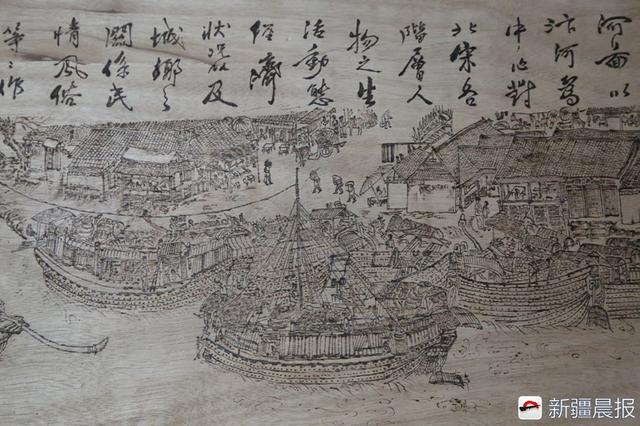 河面以
汴河為
中心對
北宋各
階層人
物之生
活動態
經濟
狀況及
城鄉之
關係民
情風俗
等々作
新疆晨报